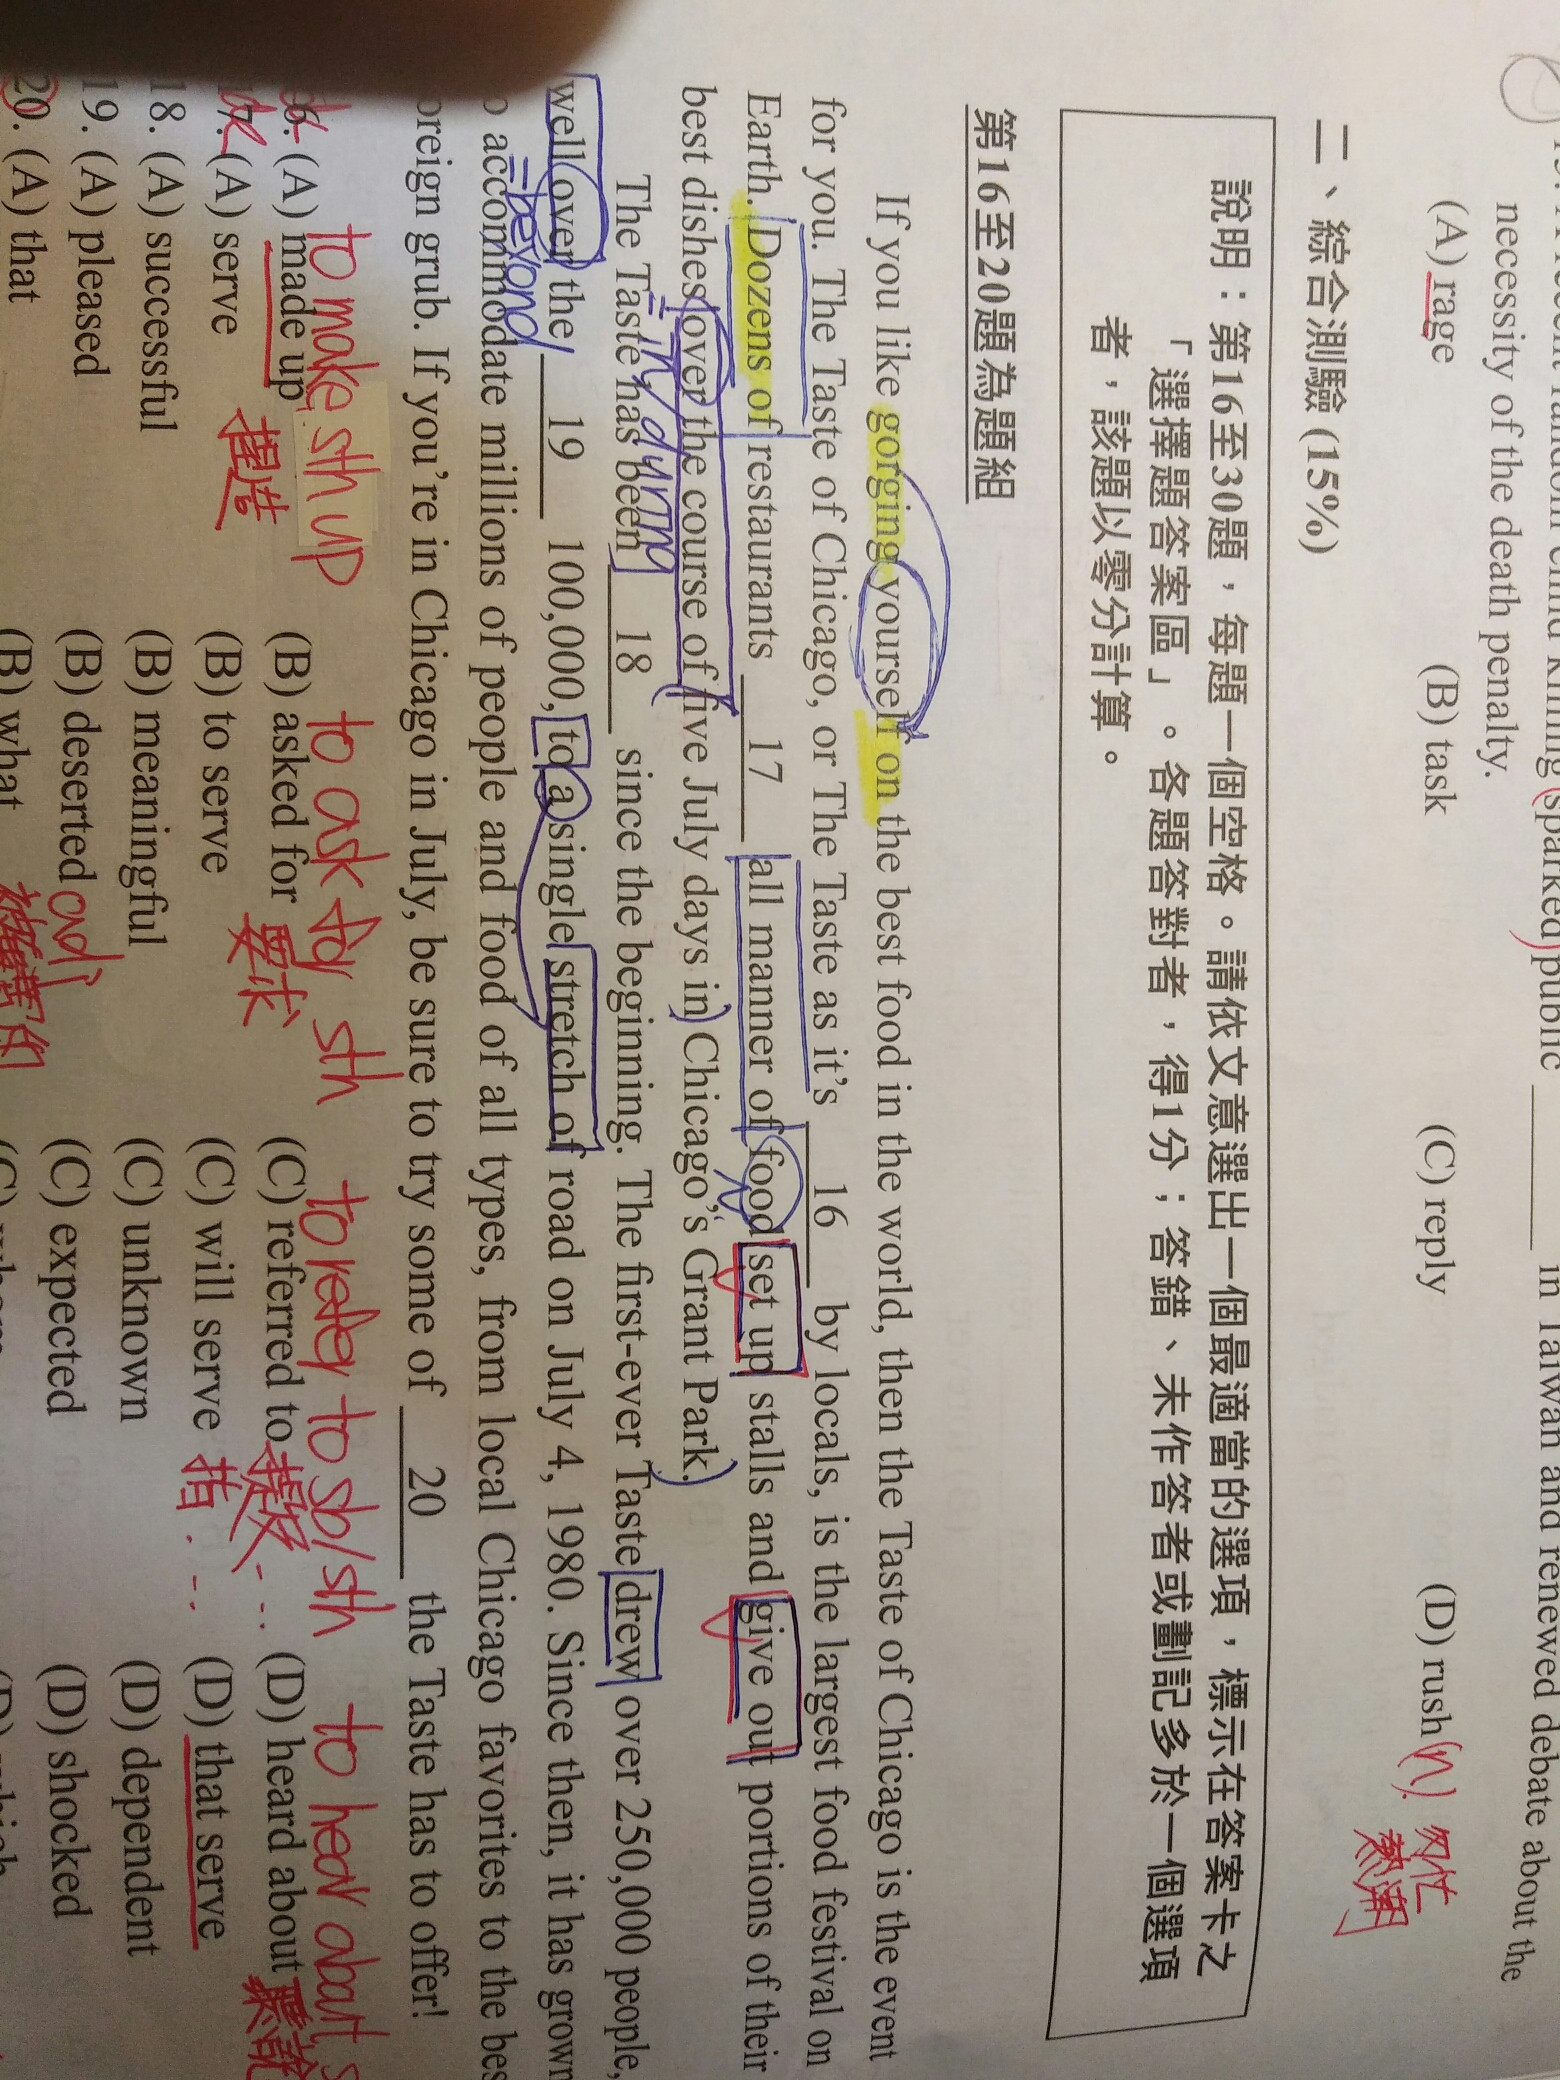 necessity of the death penalty.
in Taiwan and renewed debate about the
(A) rage (B) task (C) reply (D) rush (n). 匆忙
熱潮
二、綜合測驗 (15%)
說明：第16至30題，每題一個空格。請依文意選出一個最適當的選項，標示在答案卡之
「選擇題答案區」。各題答對者，得1分；答錯、未作答者或劃記多於一個選項
者，該題以零分計算。
第16至20題為題組
If you like gorging yourself on the best food in the world, then the Taste of Chicago is the event
for you. The Taste of Chicago, or The Taste as it's 16 by locals, is the largest food festival on
Earth. Dozens of restaurants 17 all manner of food set up stalls and give out portions of their
best dishes over the course of five July days in Chicago's Grant Park.
= in/during
The Taste has been 18 since the beginning. The first-ever Taste drew over 250,000 people,
well over the 19 100,000, to a single stretch of road on July 4, 1980. Since then, it has grown
= beyond
accommodate millions of people and food of all types, from local Chicago favorites to the bes
oreign grub. If you're in Chicago in July, be sure to try some of 20 the Taste has to offer!
to make sth up to ask for sth to refer to sb/sth to hear about s
(A) made up (B) asked for (C) referred to (D) heard about
捏造 要求 提及... 聽說
17. (A) serve (B) to serve (C) will serve (D) that serve
指...
18. (A) successful (B) meaningful (C) unknown (D) dependent
19. (A) pleased (B) deserted adj (C) expected (D) shocked
20. (A) that (B) what